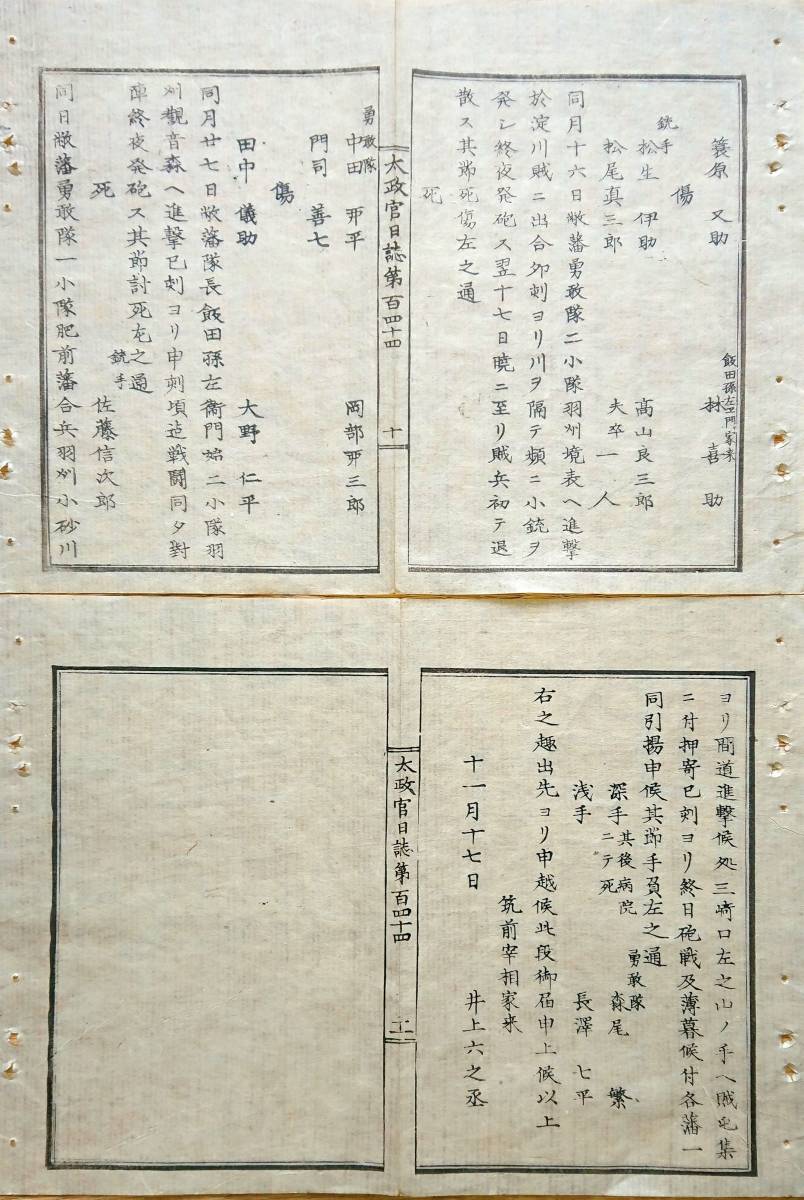 簑原又助
飯田孫左エ門家来
林喜助
傷
銃手
松生伊助
高山良三郎
松尾真三郎
夫卒一人
同月十六日敝藩勇敢隊二小隊羽刕境表ヘ進撃
於淀川賊ニ出合卯刺ヨリ川ヲ隔テ頻ニ小銃ヲ
発シ終夜発砲ス翌十七日暁ニ至リ賊兵初テ退
散ス其節死傷左之通
死
太政官日誌第百四十四
十
勇敢隊
中田平
岡部三郎
門司善七
傷
田中儀助
大野仁平
同月廿七日敝藩隊長飯田孫左衛門始二小隊羽
刕觀音森ヘ進撃巳刺ヨリ申刺頃迠戦闘同夕對
陣終夜発砲ス其節討死左之通
死
銃手
佐藤信次郎
同日敝藩勇敢隊一小隊肥前藩合兵羽刕小砂川
ヨリ間道進撃候処三崎口左之山ノ手ヘ賊屯集
ニ付押寄巳刺ヨリ終日砲戦及薄暮候付各藩一
同引揚申候其節手負左之通
深手
其後病院
ニテ死
勇敢隊
森尾繁
浅手
長澤七平
右之趣出先ヨリ申越候此段御届申上候以上
筑前宰相家来
十一月十七日
井上六之丞
太政官日誌第百四十四
十一